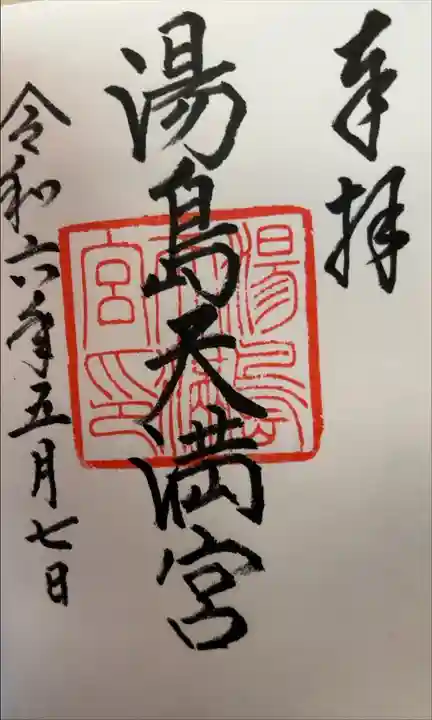 奉拝
湯島天満宮
湯島天満宮印
令和六年五月七日